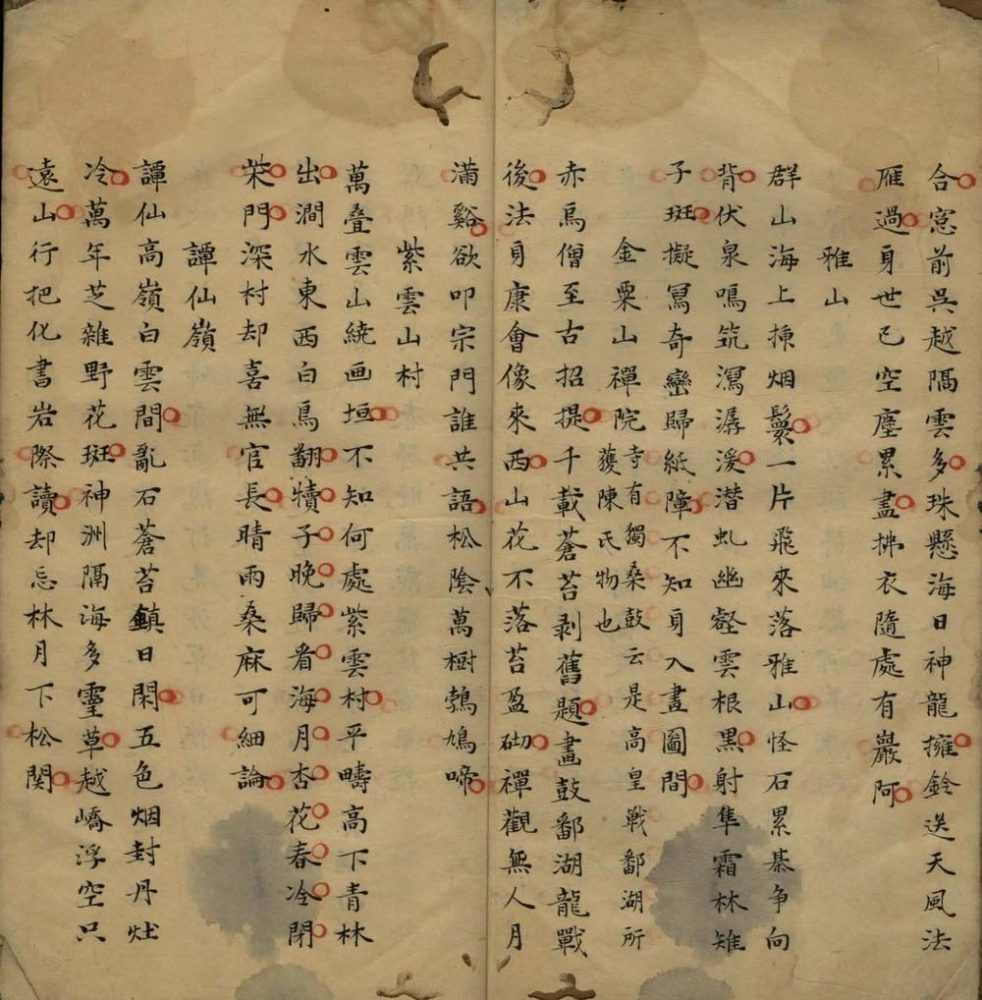 合窓前吳越隔雲多珠懸海日神龍擁鈴送天風法
雁過身世已空塵累盡拂衣隨處有巖阿
雅山
群山海上揀烟鬟一片飛來落雅山怪石累棊争向
背伏泉鳴筑瀉潺湲潜虬幽壑雲根黒射隼霜林雉
子斑擬冩奇巒歸紙障不知身入畫圖間
金粟山禪院寺有獨桑鼓云是高皇戰鄱湖所
獲陳氏物也
赤烏僧至古招提千載蒼苔剥舊題畫鼓鄱湖龍戰
後法身康會像來西山花不落苔盈砌禪觀無人月
滿谿欲叩宗門誰共語松陰萬樹鵓鳩啼
紫雲山村
萬叠雲山繞画垣不知何處紫雲村平疇高下青林
出澗水東西白鳥翻犢子晚歸看海月杏花春冷閉
柴門深村却喜無官長晴雨桑麻可細論
譚仙嶺
譚仙高嶺白雲間亂石蒼苔鎮日閑五色烟封丹灶
冷萬年芝雜野花斑神洲隔海多靈草越嶠浮空只
遠山行把化書岩際讀却忘林月下松関